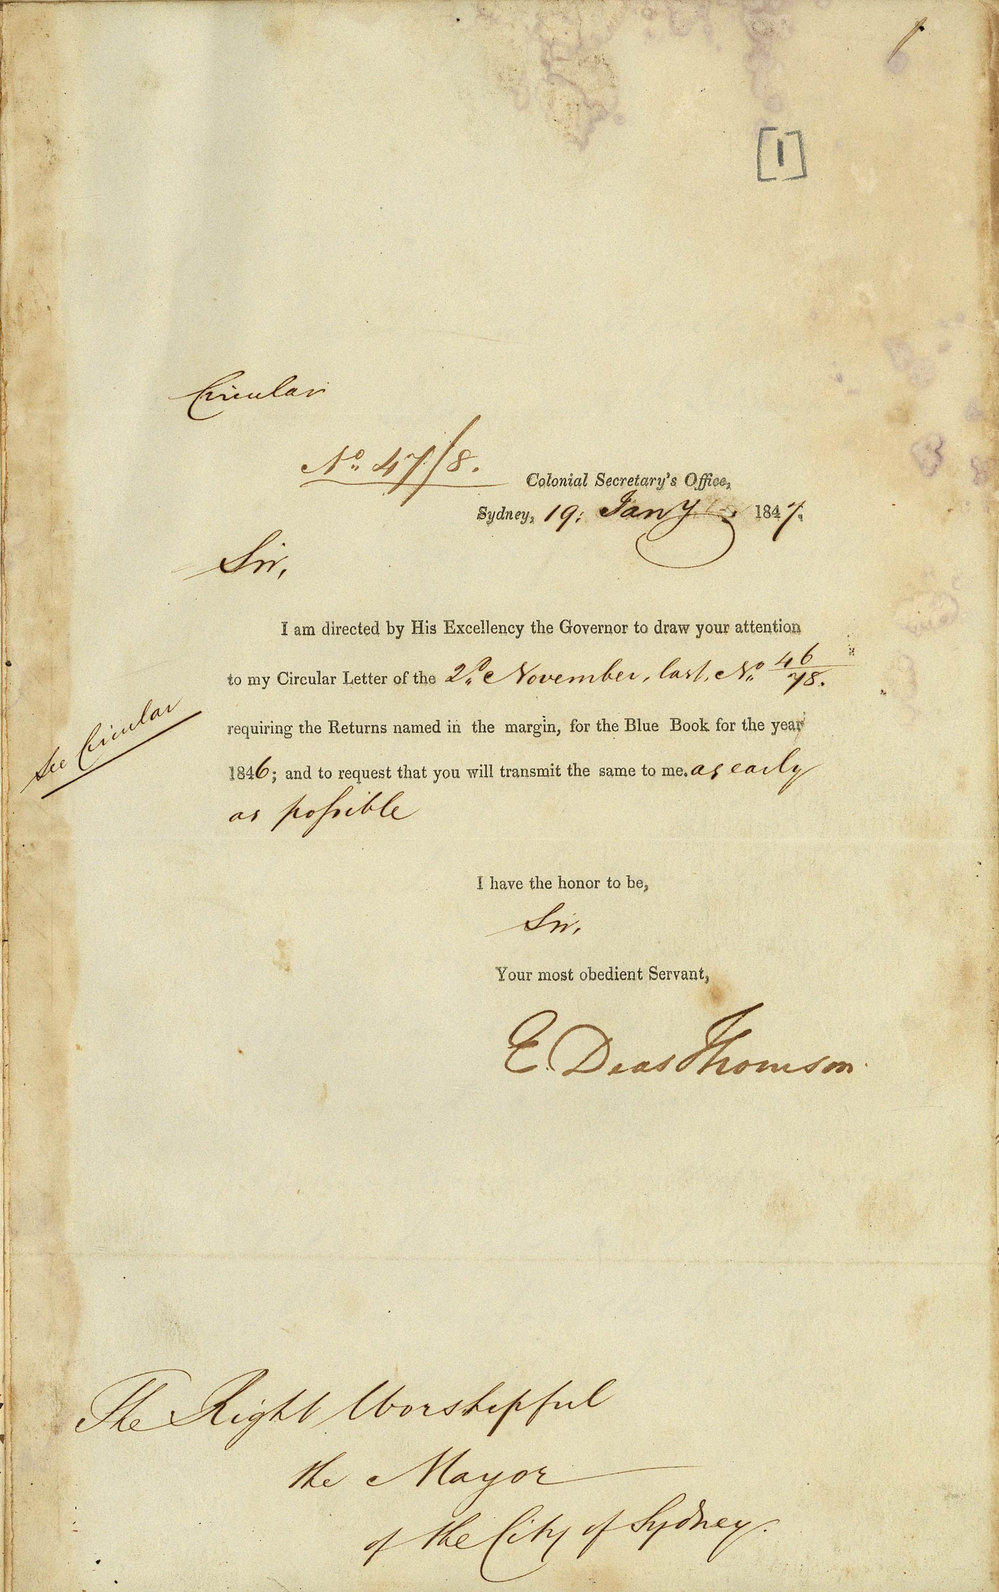 [1]
Circular
No. 47/8.
Colonial Secretary's Office,
Sydney, 19: Jany 1847.
Sir,
I am directed by His Excellency the Governor to draw your attention
to my Circular Letter of the 2d November, last, No. 46/78.
See Circular
requiring the Returns named in the margin, for the Blue Book for the year
1846; and to request that you will transmit the same to me. as early
as possible
I have the honor to be,
Sir,
Your most obedient Servant,
E. Deas Thomson
The Right Worshipful
the Mayor
of the City of Sydney.